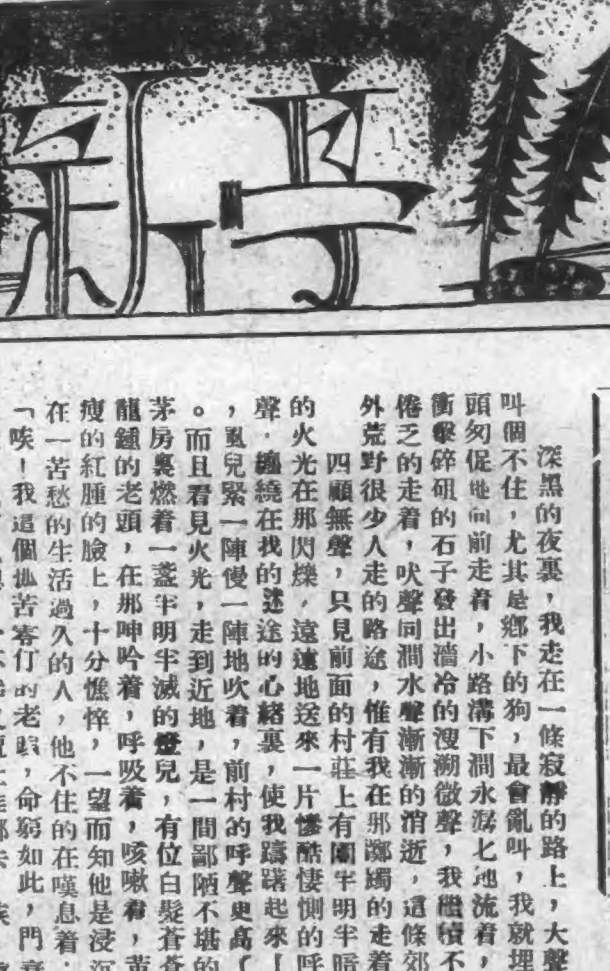 新亭
深黑的夜裏，我走在一條寂靜的路上，大聲
叫個不住，尤其是鄉下的狗，最會亂叫，我就埋
頭匆促地向前走着，小路溝下澗水潺七地流着，
衝擊碎砠的石子發出濇冷的溲溯微聲，我繼續不
倦乏的走着，吠聲同澗水聲漸漸的消逝，這條郊
外荒野很少人走的路途，惟有我在那躑躅的走着
四顧無聲，只見前面的村莊上有團半明半暗
的火光在那閃爍，遠遠地送來一片慘酷悽惻的呼
聲，纏繞在我的迷途的心緒裏，使我躊躇起來
，風兒緊一陣慢一陣地吹着，前村的呼聲更高
。而且看見火光，走到近地，是一間鄙陋不堪的
茅房裏燃着一盞半明半滅的燈兒，有位白髮蒼蒼
龍鍾的老頭，在那呻吟着，呼吸着，咳嗽着，黃
瘦的紅腫的臉上，十分憔悴，一望而知他是浸沉
在一苦愁的生活過久的人，他不住的在嘆息着：
「唉！我這個孤苦零仃的老頭，命窮如此，門衰